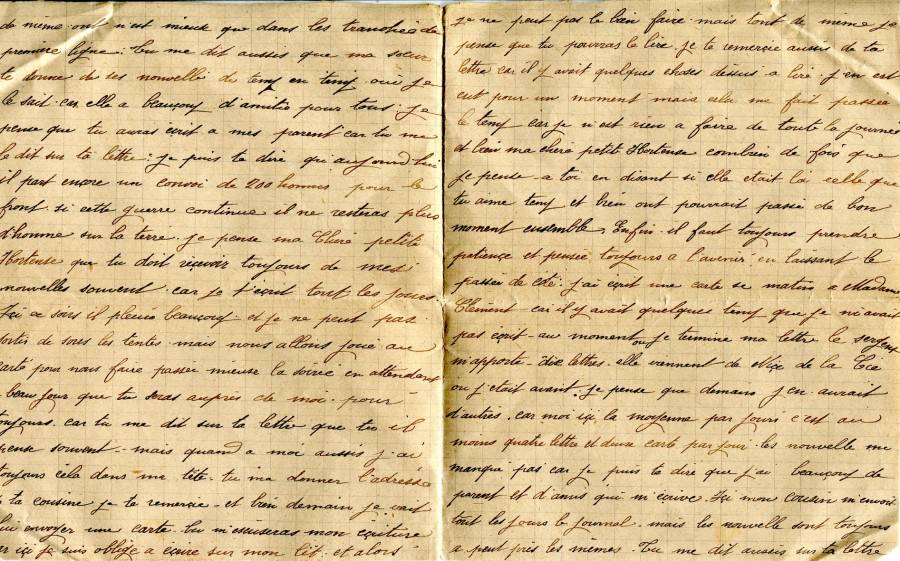 de même ont n'est mieux que dans les tranchées de
première ligne. Tu me dit aussis que ma soeur
te donne de ses nouvelle de temp en temp oui je
le sait car elle a beaucoup d'amitié pour tous. je
pense que tu auras écrit a mes parent car tu me
le dit sur ta lettre. je puis te dire qu'aujourd'hui
il part encore un convoi de 200 hommes pour le
front si cette guerre continue il ne resteras plus
d'homme sur la terre. je pense ma Chère petite
Hortense que tu doit reçevoir toujours de mes
nouvelles souvent. car je t'ecrit tout les jours
Ici ce soir il pleus beaucoup et je ne peut pas
sortir de sous les tentes mais nous allons joué au
carté pour nous faire passer mieuse la soiré en attendant
beau jour que tu seras aupres de moi. pour
toujours. car tu me dit sur ta lettre que tu
pense souvent. mais quand a moi aussis j'ai
toujours cela dans ma tête. tu ma donner l'adresse
ta cousine je te remerçie. et bien demain je vait
lui envoyer une carte. tu m'excuseras mon écriture
car içi je suis obligé a écrire sur mon lit. et alors
je ne peut pas le bien faire mais tout de même je
pense que tu pourras le lire. je te remerçie aussis de ta
lettre car il y avait quelques choses dessus a lire. j'en est
eut pour un moment mais cela me fait passée
le temp car je n'est rien a faire de toute la journée
et bien ma chère petite Hortense combien de fois que
je pense a toi en disant si elle était là celle que
tu aime temp et bien ont pourrait passé de bon
moment ensemble. Enfin il faut toujours prendre
patience et pensée toujours a l'avenir en laissant le
passée de côté. j'ai écrit une carte se matin a Madame
Clément car il y avait quelques temp que je n'avait
pas ecrit. au moment ou je termine ma lettre le sergent
m'apporte dix lettres. elle viennent de Nice de la Cie
ou j'etait avant. je pense que demain j'en aurait
d'autres. car moi içi la moyenne par jours c'est au
moins quatre lettre et deux carte par jour. les nouvelle me
manque pas car je puis te dire que j'ai beaucoup de
parent et d'amis qui m'ecrive. Ici mon cousin m'envoit
tout les jours le journal. mais les nouvelle sont toujours
a peut près les mêmes. Tu me dit aussis sur ta lettre